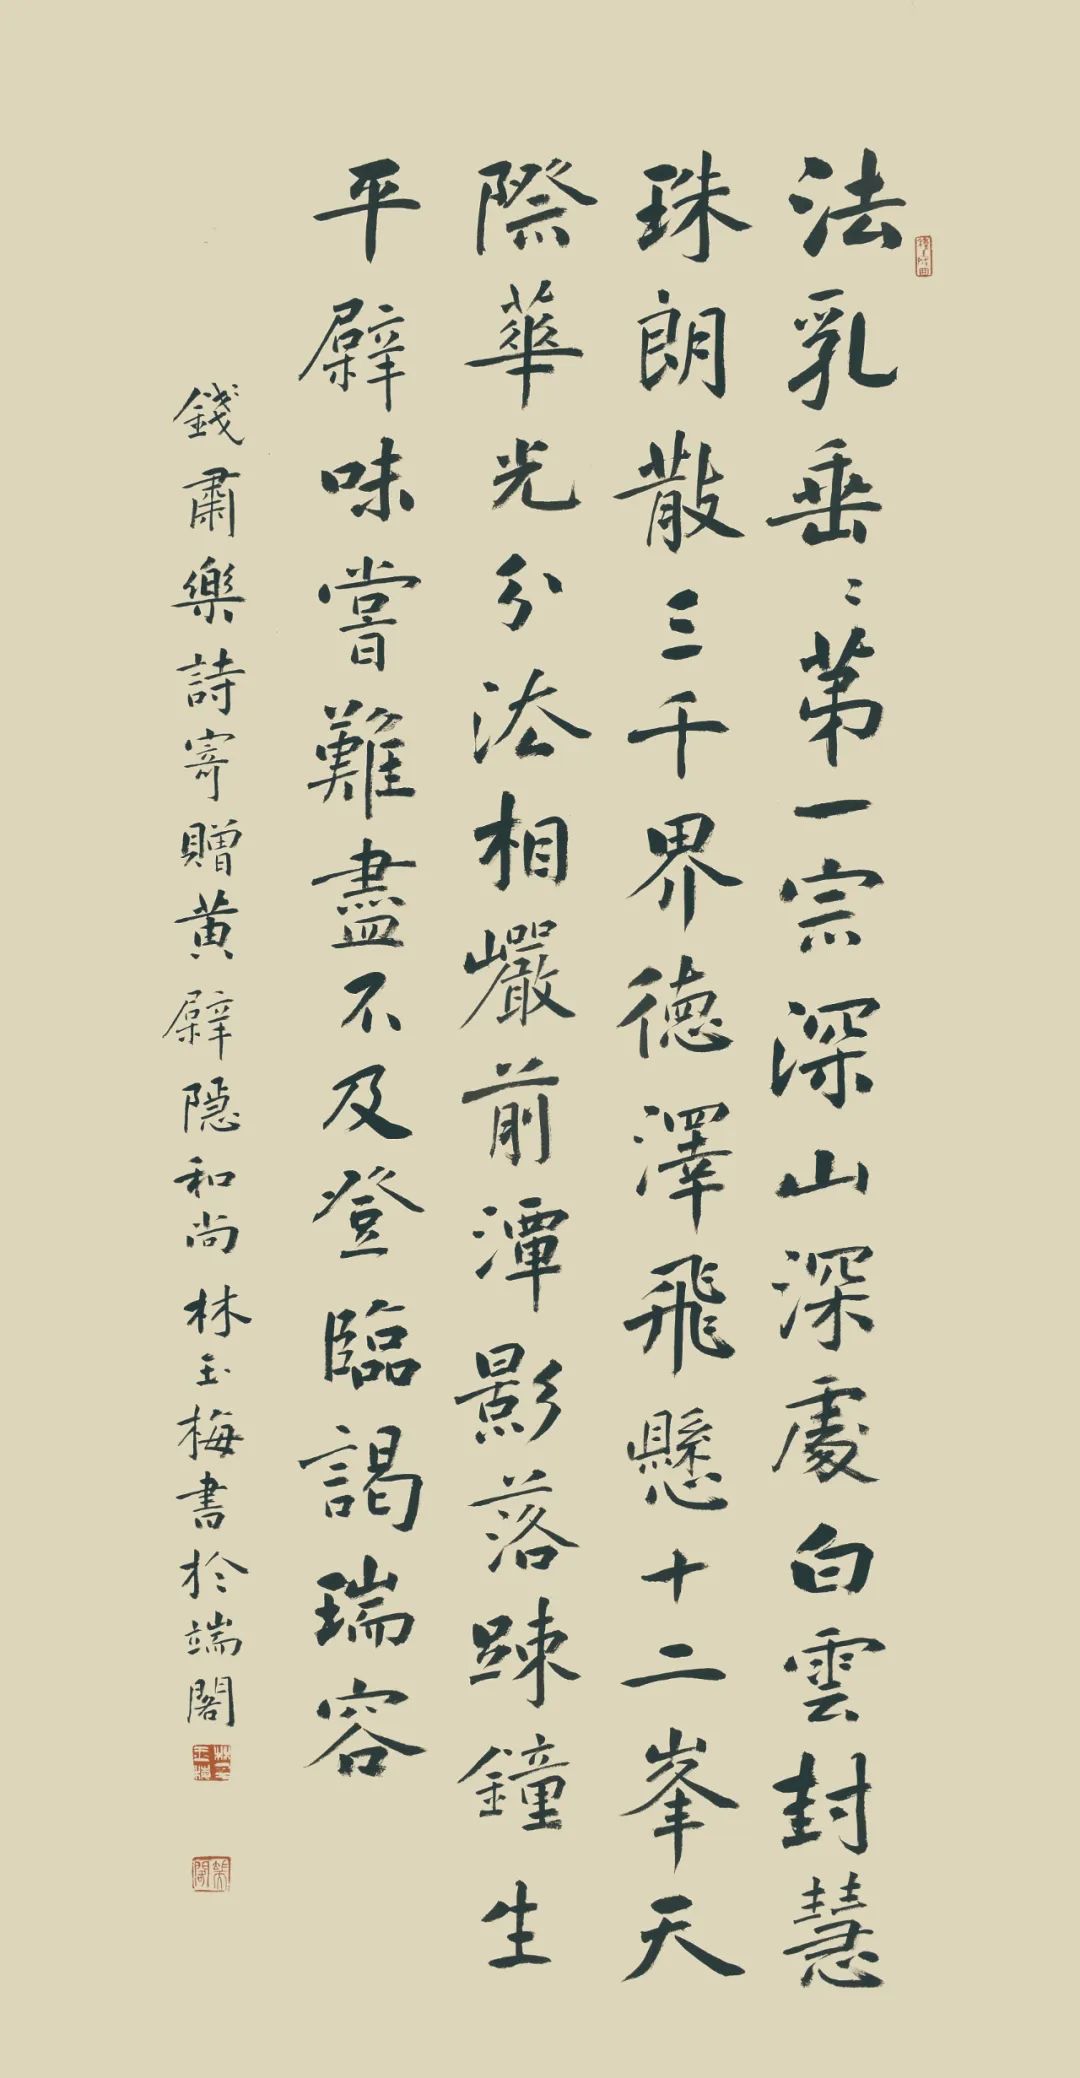 法乳垂〻第一宗深山深處白雲封慧
珠朗散三千界德澤飛懸十二峯天
際華光分法相巖前潭影落踈鐘生
平檗味嘗難盡不及登臨謁瑞容
錢肅樂詩寄贈黄檗隱和尚林玉梅書於端閣